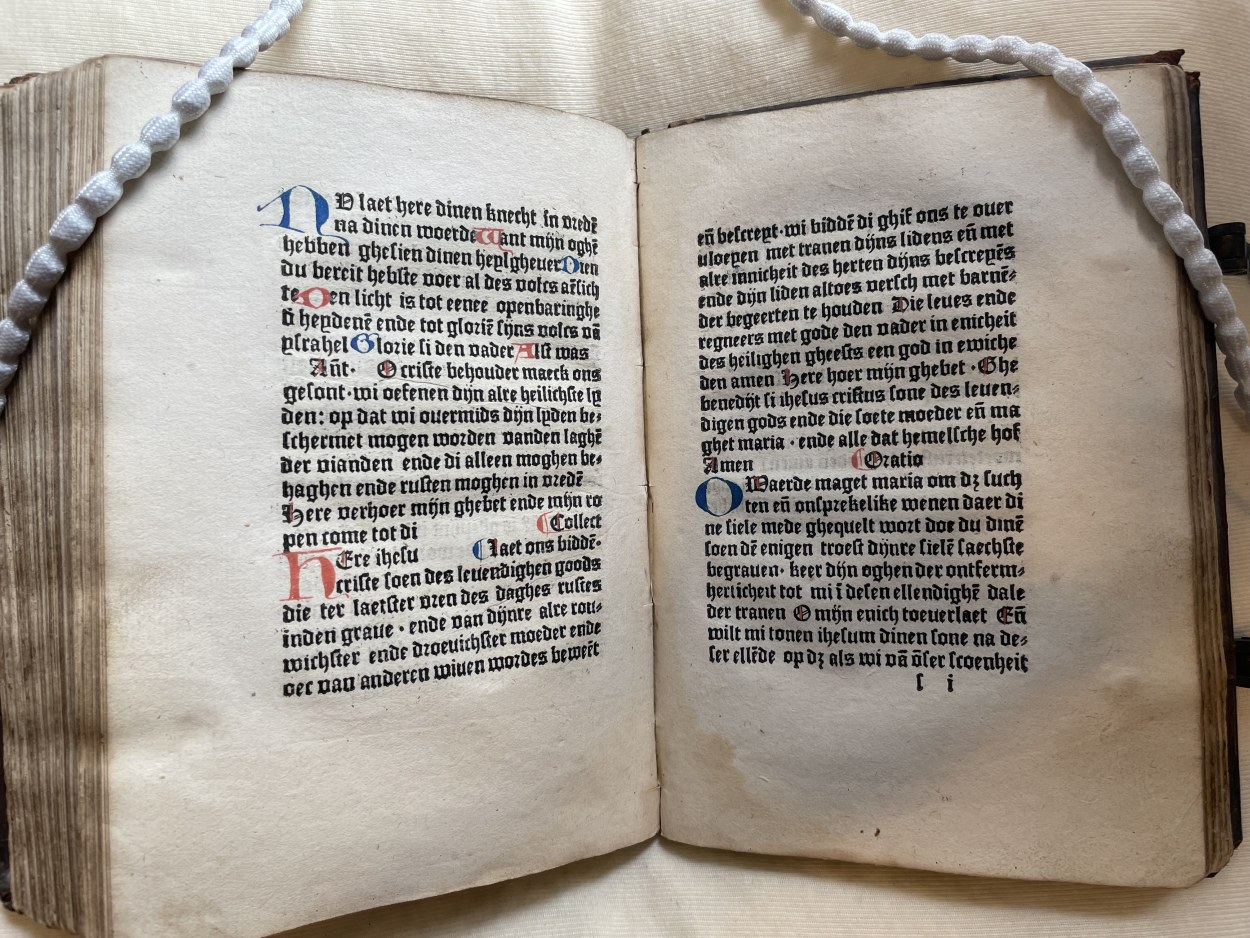 NV laet here dinen knecht in vredē
na dinen woerde Want mijn oghē
hebben ghesien dinen heylgheuer Dien
du bereit hebste voer al des volcs āsich
te Een licht is tot eenee openbaringhe
d̄ heydenē ende tot gloriē sijns volcs vā
ysrahel Glorie si den vader Alst was
Añt· O criste behouder maeck ons
gesont·wi oefenen dijn alre heilichste ly
den: op dat wi ouermids dijn lyden be⸗
schermet mogen worden vanden laghē
der vianden ende di alleen moghen be⸗
haghen ende rusten moghen in vredē
Here verhoer mijn ghebet ende mijn ro
pen come tot di Collect
HEre ihesu laet ons biddē·
criste soen des leuendighen goods
die ter laetster vren des daghes rustes
inden graue · ende van dijnre alre rou⸗
wichster ende droeuichster moeder ende
oec van anderen wiuen wordes beweēt
eñ bescreyt·wi biddē di ghif ons te ouer
uloeyen met tranen dijns lidens eñ met
alre innicheit des herten dijns bescreyēs
ende dijn liden altoes versch met barnē⸗
der begeerten te houden Die leues ende
regneers met gode den vader in enicheit
des heilighen gheests een god in ewiche
den amen Here hoer mijn ghebet · Ghe
benedijt si ihesus cristus sone des leuen⸗
digen gods ende die soete moeder eñ ma
ghet maria · ende alle dat hemelsche hof
Amen Oratio
O Waerde maget maria om dʒ such
ten eñ onsprekelike wenen daer di
ne siele mede ghequelt wort doe du dinē
soen dē enigen troest dijnre sielē saechste
begrauen· keer dijn oghen der ontferm⸗
herticheit tot mi ī desen ellendighē dale
der tranen O mijn enich toeuerlaet Eñ
wilt mi tonen ihesum dinen sone na de⸗
ser ellēde op dʒ als wi vā ōser scoenheit
s i